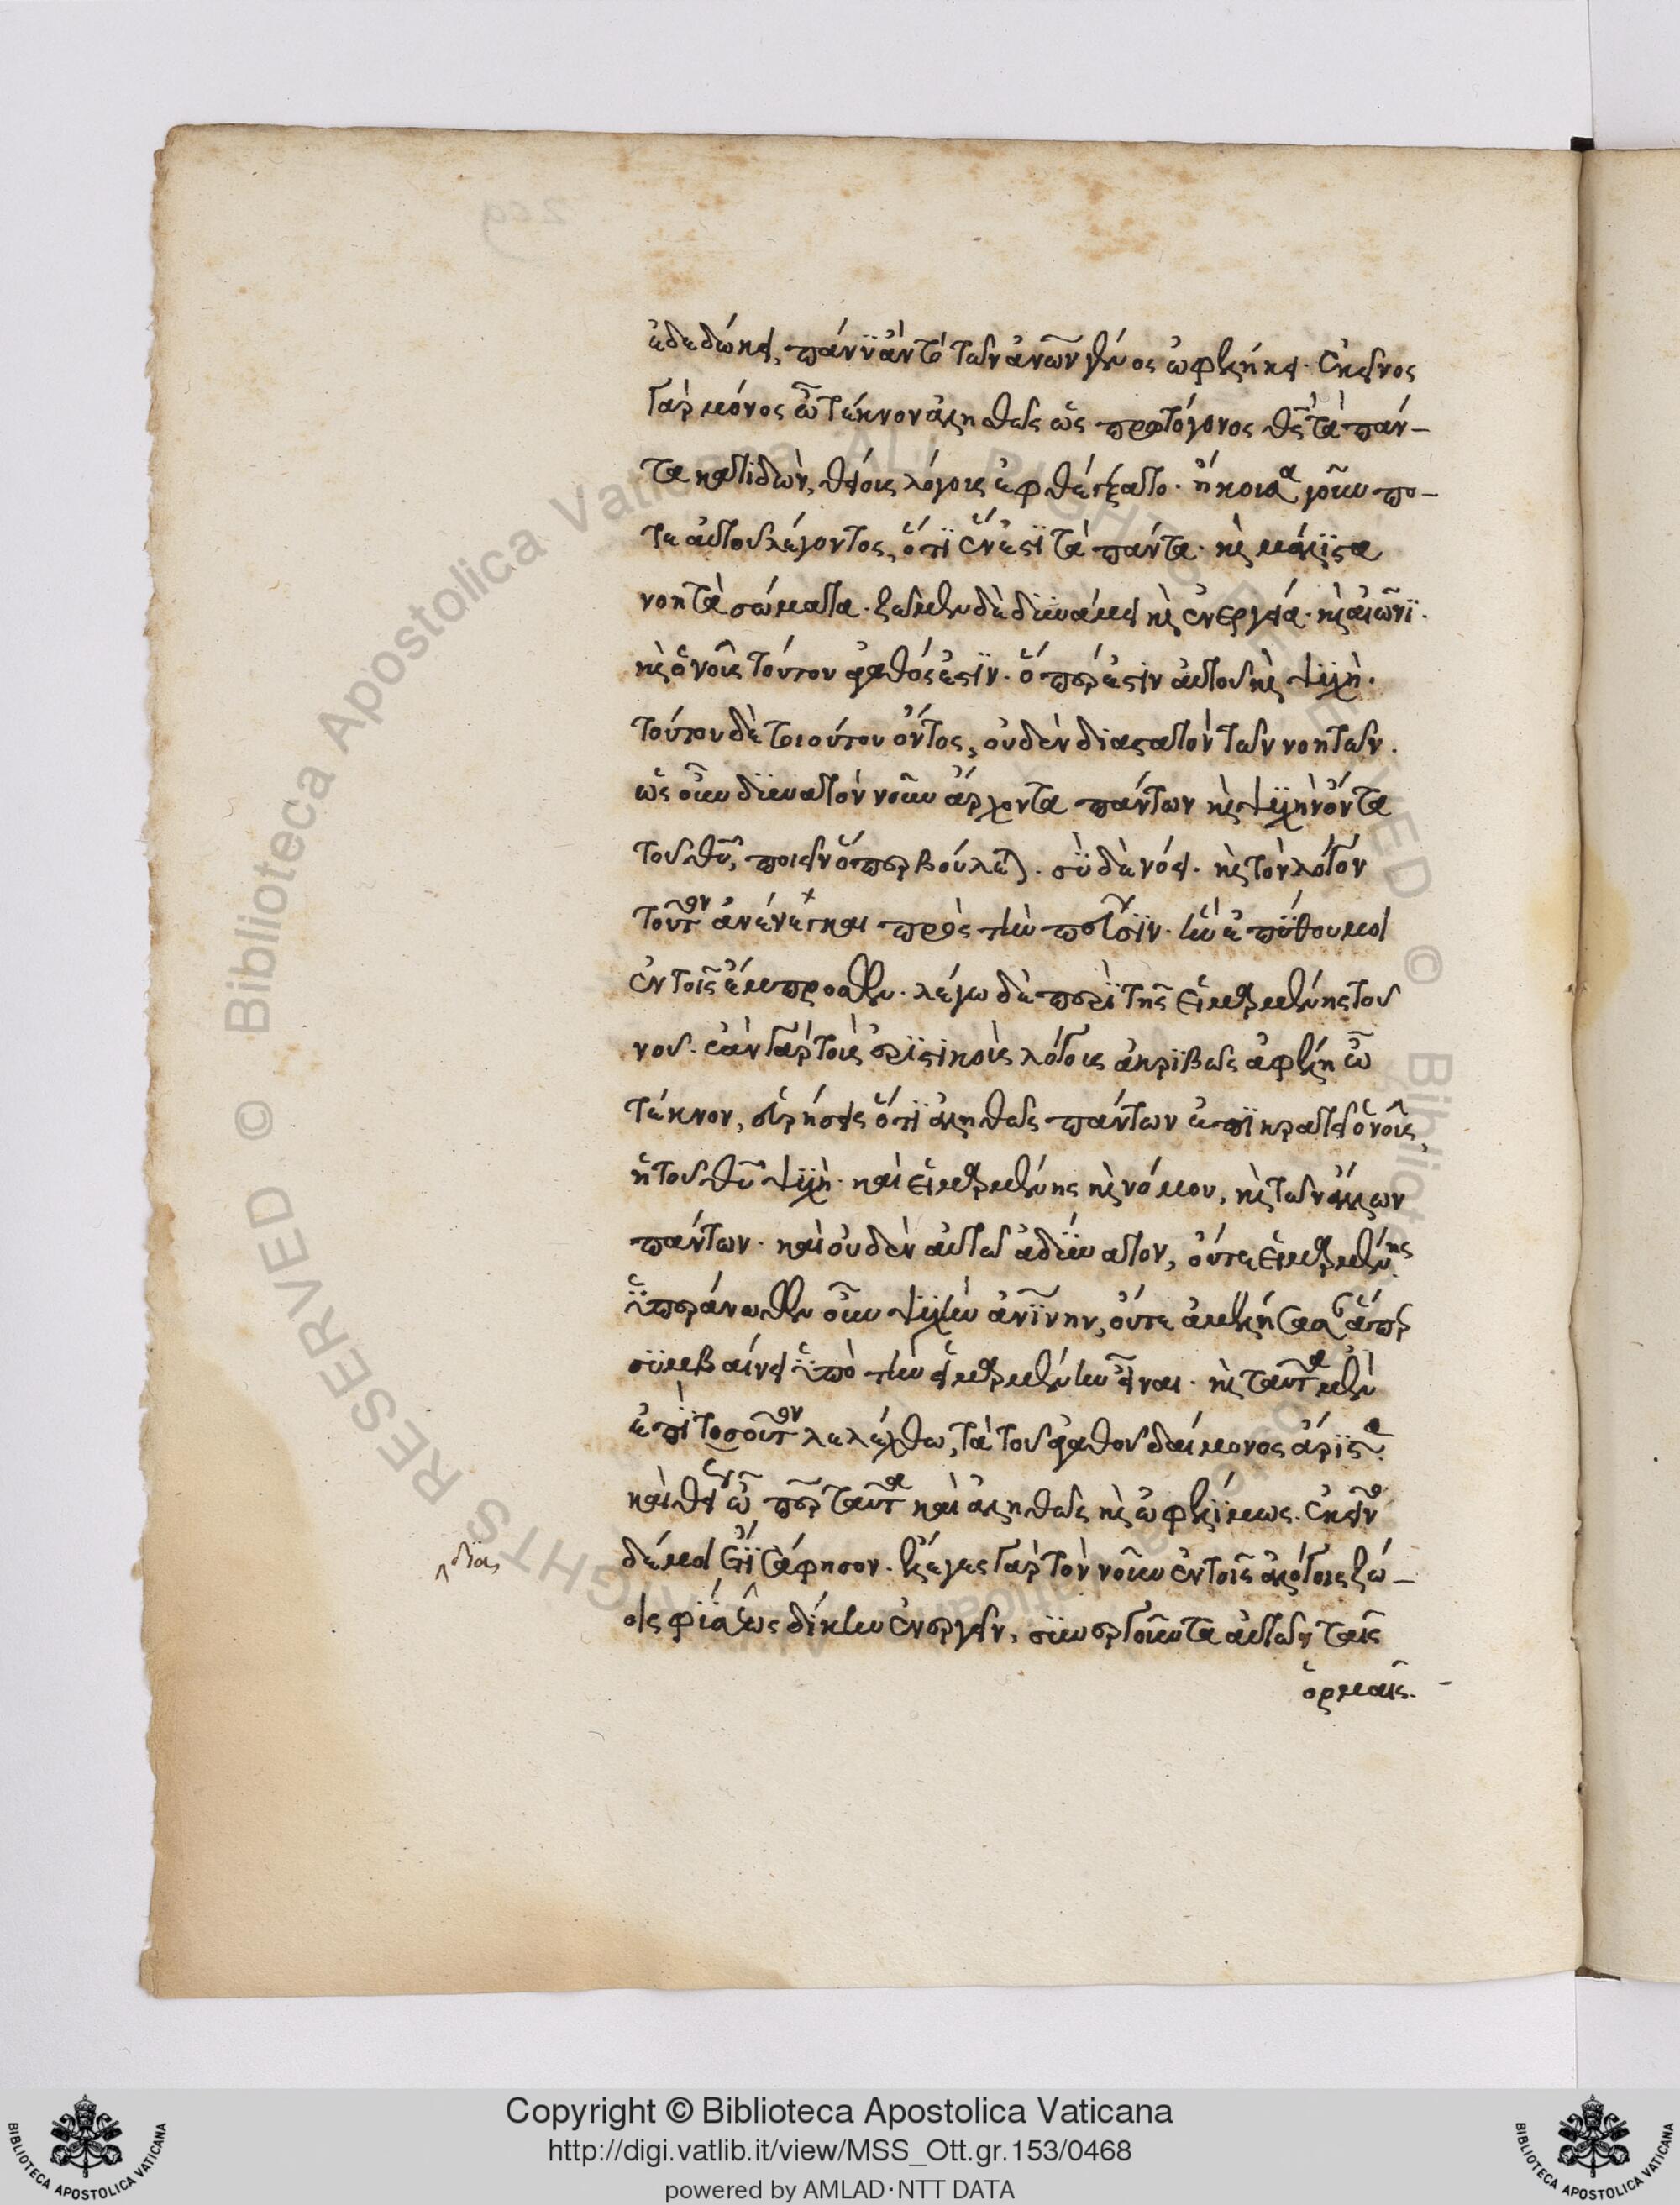 ἐδεδώκει, πάνυ ἂν τὸ τῶν ἀνων γένος ὠφελήκει. ἐκεῖνος
γὰρ μόνος ὦ τέκνον ἀληθῶς ὡς πρωτόγονος θς τὰ πάν-
τα κατιδὼν, θείους λόγους ἐφθέγξατο. ἤκουσα γοῦν πο-
τε αὐτοῦ λέγοντος, ὅτι ἕν ἐστι τὰ πάντα. κ μάλιστα
νοητὰ σώματα. ζῶμεν δὲ δυνάμει κ ἐνεργεία. κ αἰῶνι.
κ ὁ νοῦς τούτου ἀγαθός ἐστιν. ὅπερ ἐστιν αὐτοῦ κ ψυχὴ.
τούτου δὲ τοιούτου ὄντος, οὐδὲν διαστατὸν τῶν νοητῶν.
ὡς οὖν δυνατὸν νοῦν ἄρχοντα πάντων κ ψυχὴν ὄντα
τοῦ θυ, ποιεῖν ὅπερ βούλεται. σὺ δὲ νόει. κ τὸν λόγον
τοῦτον ἀνένεγκαι πρὸς τὴν πεῦσιν. ἣν ἐπύθου μοι
ἐν τοῖς ἔμπροσθεν. λέγω δὲ περὶ τῆς εἱμαρμένης τοῦ
νου. ἐὰν γὰρ τοὺς ἐριστικοὺς λόγους ἀκριβῶς ἀφέλη ὦ
τέκνον, εὑρήσεις ὅτι ἀληθῶς πάντων ἐπικρατεῖ ὁ νοῦς,
ἡ τοῦ θυ ψυχὴ. καὶ εἱμαρμένης κ νόμου, κ τῶν ἄλλων
πάντων. καὶ οὐδὲν αὐτῶ ἀδύνατον, οὔτε εἱμαρμένης
ὑπεράνωθεν οὖν ψυχὴν ἀνίνην, οὔτε ἀμελήσασα ἅπερ
συμβαίνει ὑπὸ τὴν εἱμαρμένην εἶναι. κ ταῦτα μὲν
ἐπὶ τοσοῦτον λελέχθω, τὰ τοῦ ἀγαθοῦ δαίμονος ἄριστα.
καὶ θείως ὦ περ ταῦτα καὶ ἀληθῶς κ ὠφελίμως. ἐκεῖνο
δέ μοι ἔτι σάφησον. ἔλεγες γὰρ τὸν νοῦν ἐν τοῖς ἀλόγοις ζώ-
δια,
οις φύσεως δίκην ἐνεργεῖν, συνεργοῦντα αὐτῶν ταῖς
ὁρμαῖς.
Copyright © Biblioteca Apostolica Vaticana
http://digi.vatlib.it/view/MSS_Ott.gr.153/0468
powered by AMLAD·NTT DATA